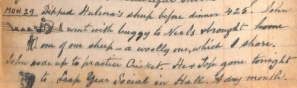 MON 29 Dipped Helena's sheep before dinner 425. John
& I went with buggy to Neals & brought home
one of our sheep - a woolly one, which I shore.
John rode up to practice Cricket. He & Top gone tonight
to Leap Year Social in Hall. A dry month.